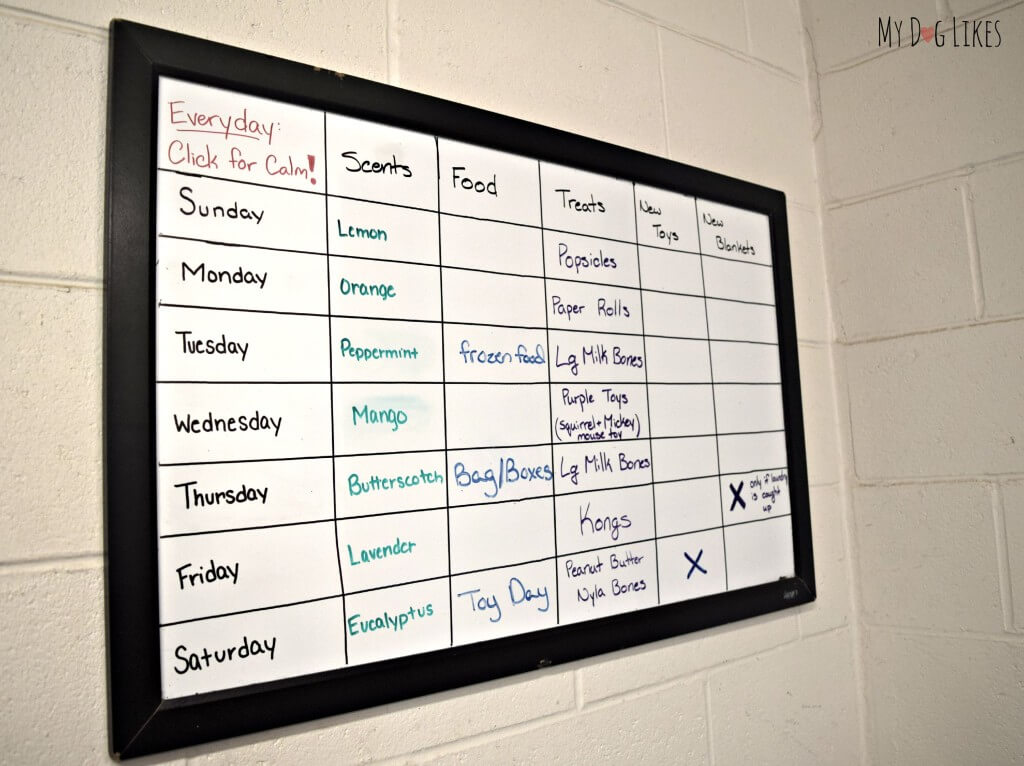 My Dog Likes
Everyday:
Click for Calm!
Scents
Food
Treats
New
Toys
New
Blankets
Sunday
Lemon
Popsicles
Monday
Orange
Paper Rolls
Tuesday
Peppermint
frozen food
Lg Milk Bones
Wednesday
Mango
Purple Toys
(Squirrel + Mickey
mouse toy)
Thursday
Butterscotch
Bag/Boxes
Lg Milk Bones
Friday
Lavender
Kongs
X only if laundry
is caught
up
Saturday
Eucalyptus
Toy Day
Peanut Butter
Nyla Bones
X